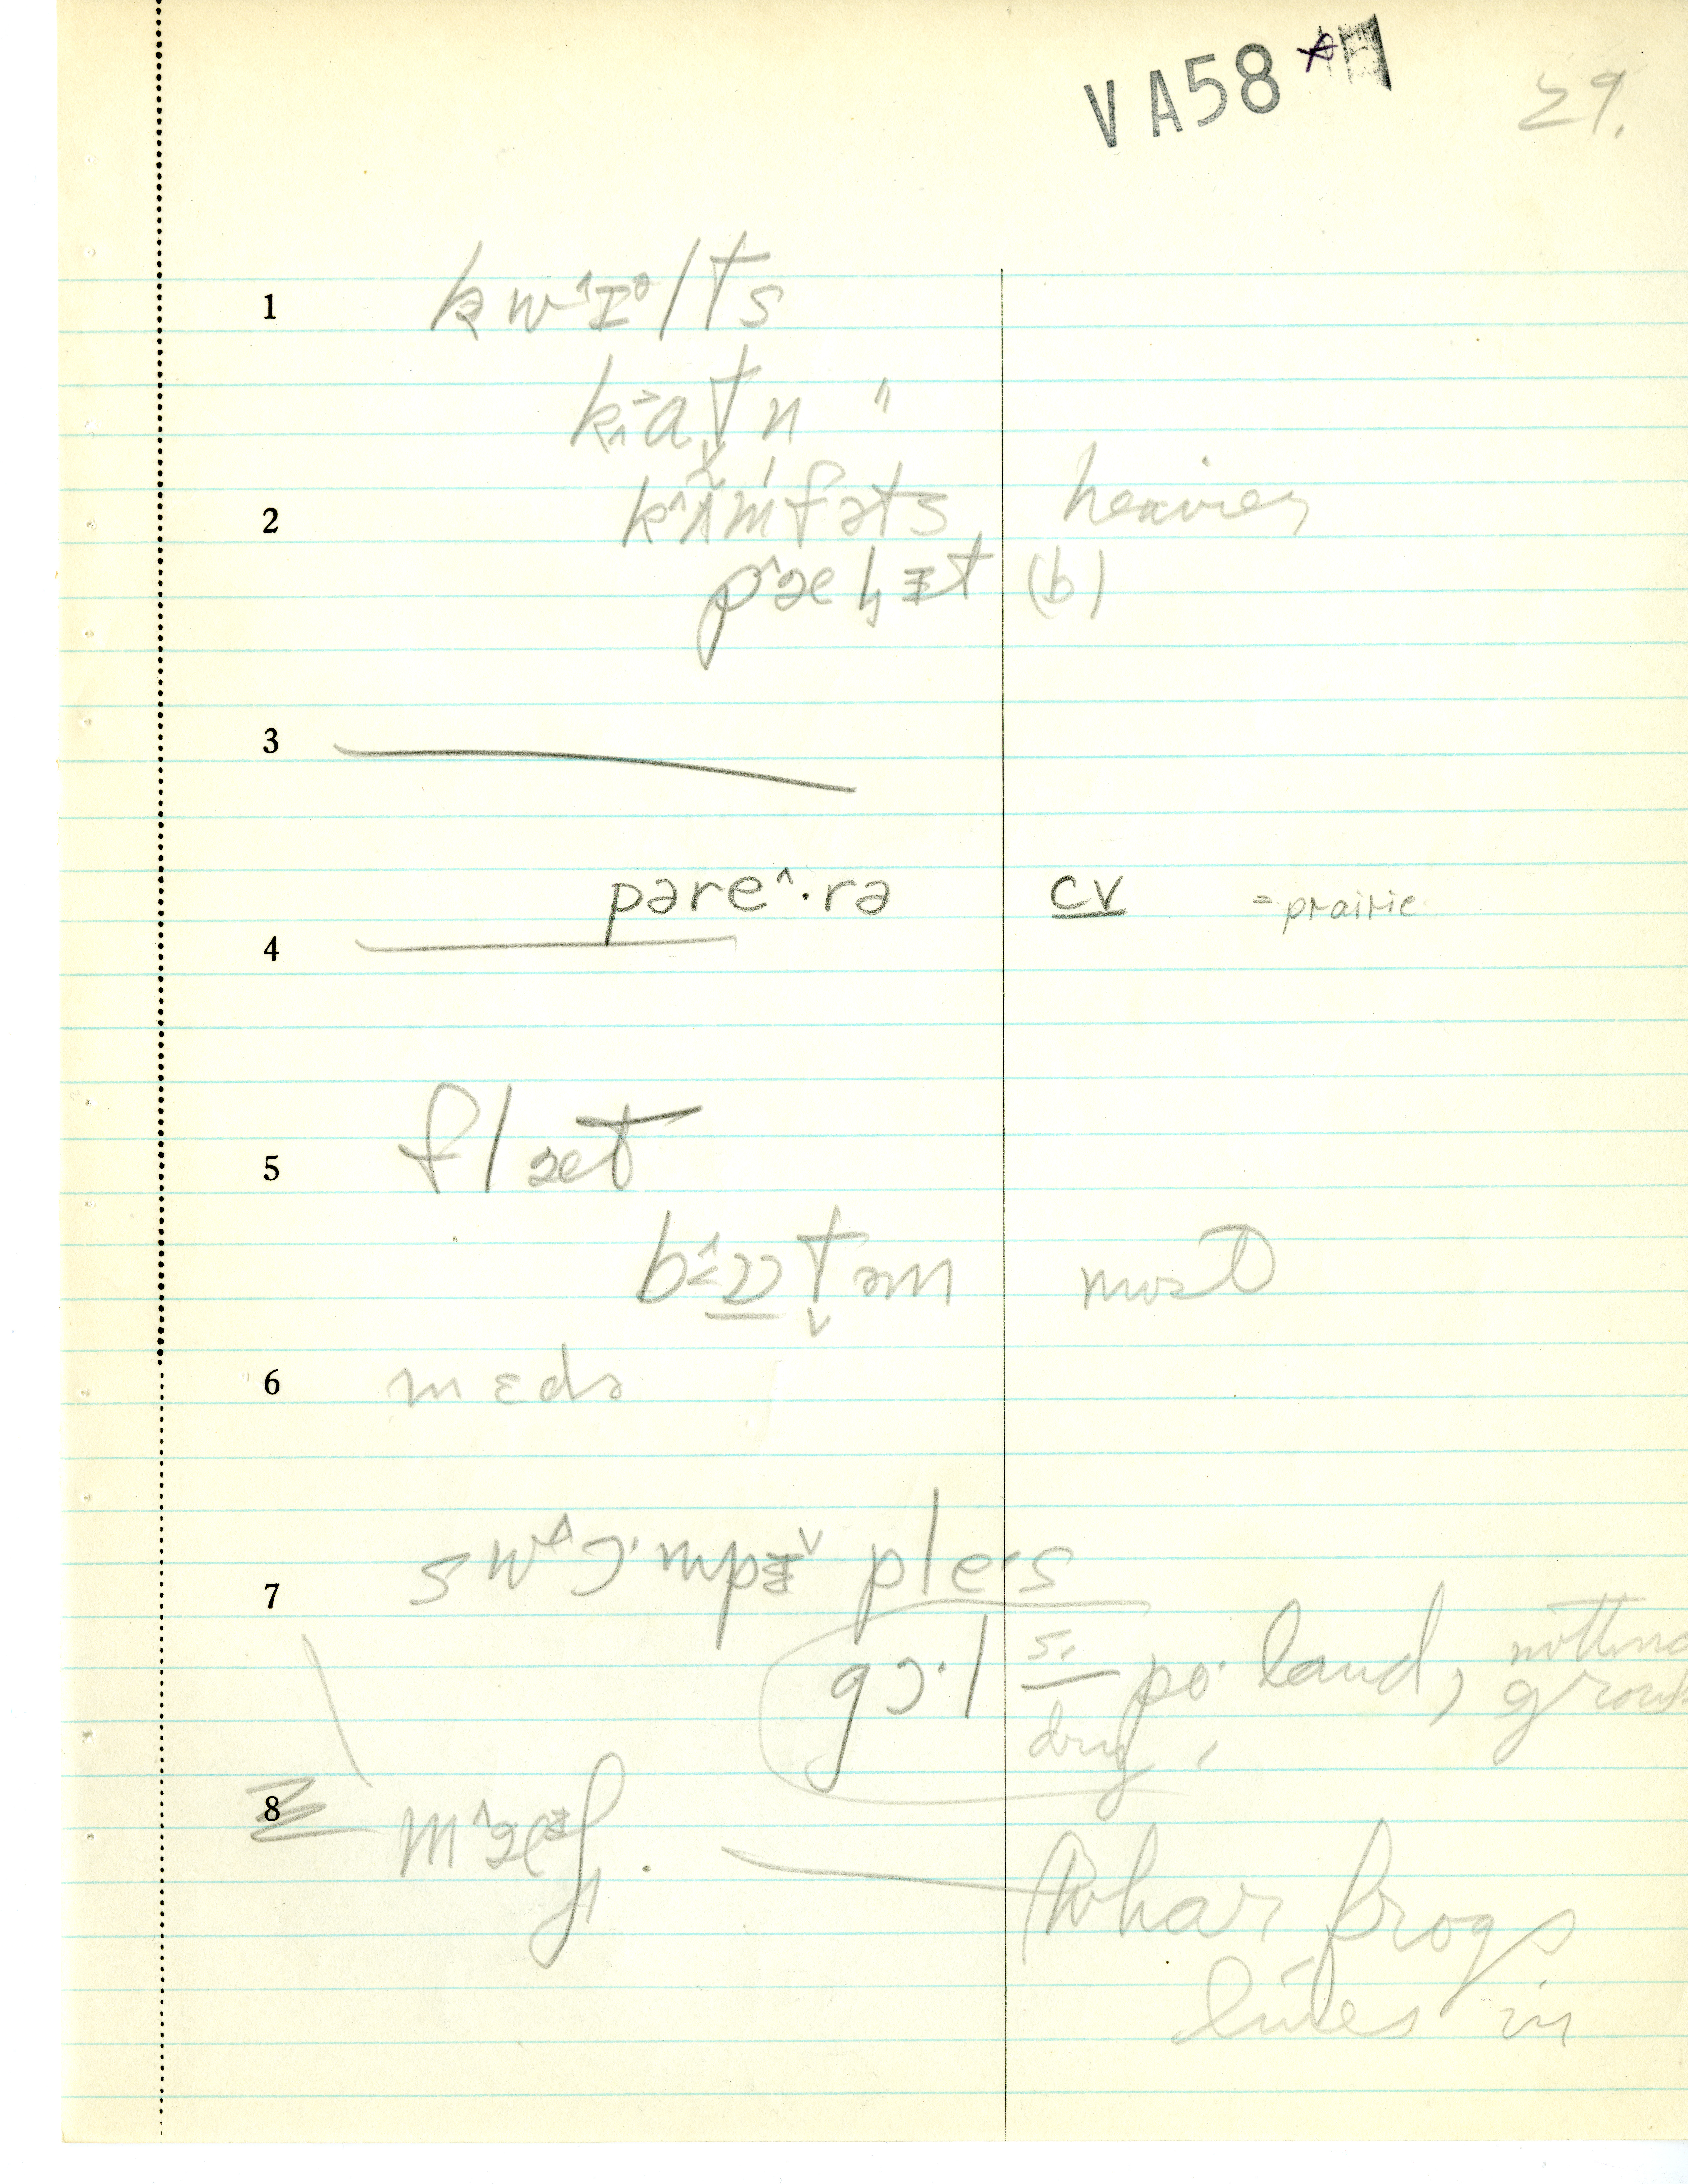 VA58 *
29.
1 kwˆɪᵊlts
kˆatn "
2 kˆʌmfəts heavier
pˆæhɪt (b)
3
pəreˆ·rə CV = prairie
4
5 flæt
bˆɒtəm most
6 mɛdə
7 swˆɔ·mpɪˇ ple·s
gɔ·l so. po· land, nothing grows
dry,
8 mˆæᵊʃ. Whar frogs
lives in